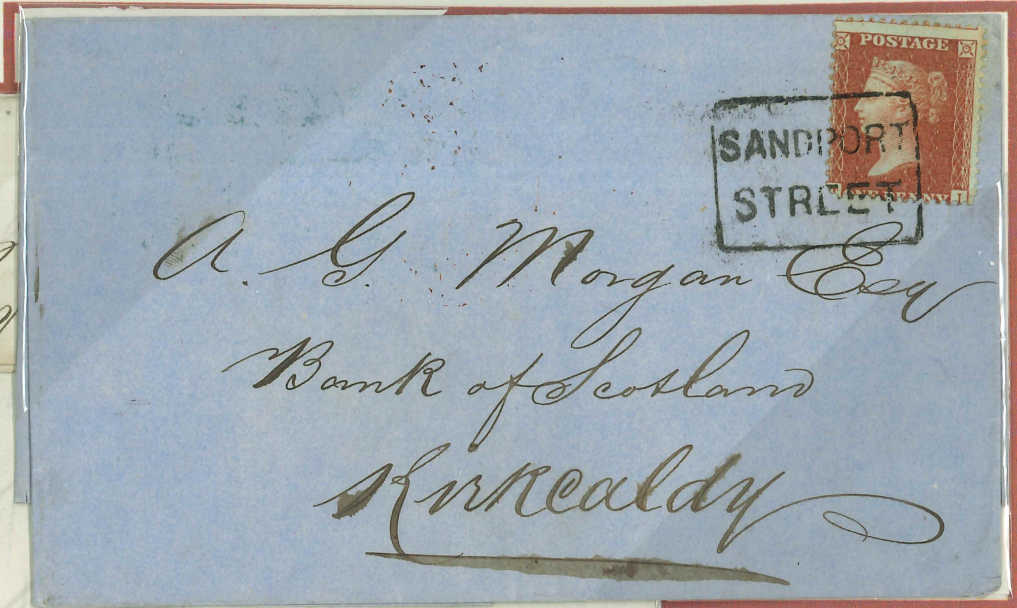 POSTAGE
SANDPORT
STREET
A. G. Morgan Esq
Bank of Scotland
Kirkcaldy